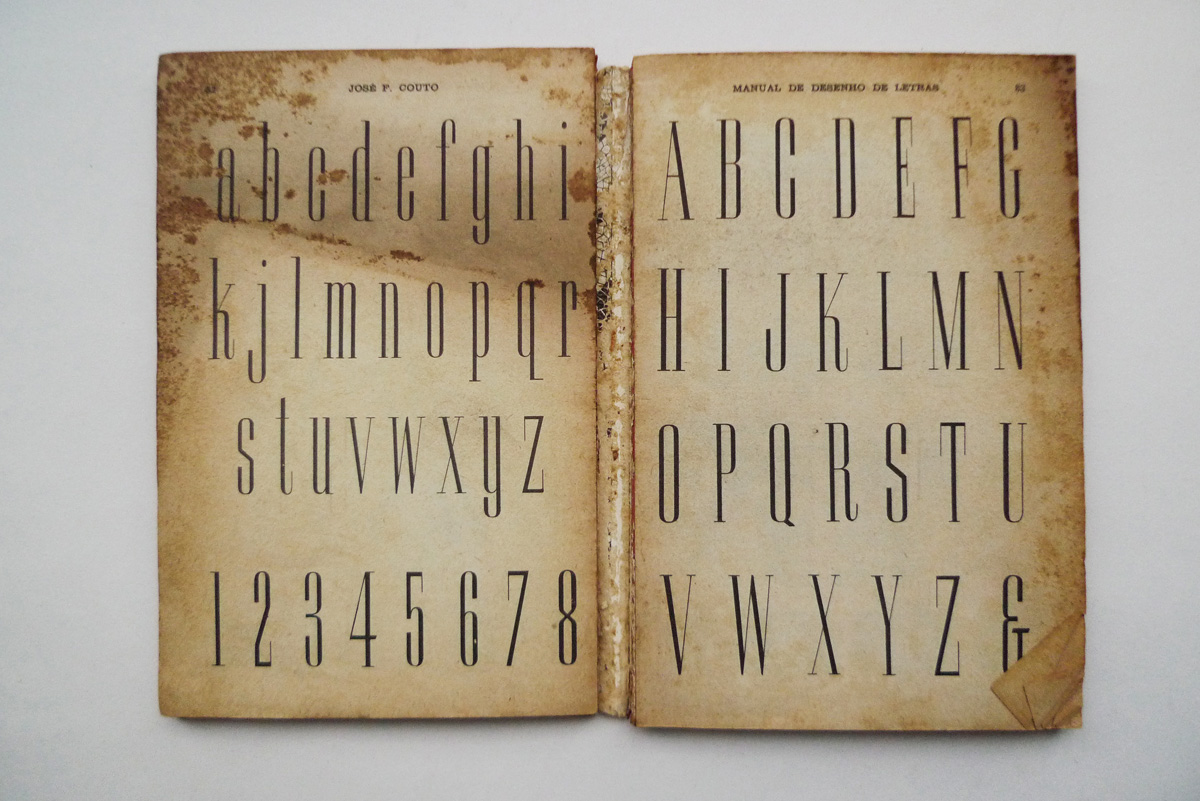 JOSÉ F. COUTO
a b c d e f g h i
k j l m n o p q r
s t u v w x y z
1 2 3 4 5 6 7 8
MANUAL DE DESENHO DE LETRAS
A B C D E F G
H I J K L M N
O P Q R S T U
V W X Y Z &